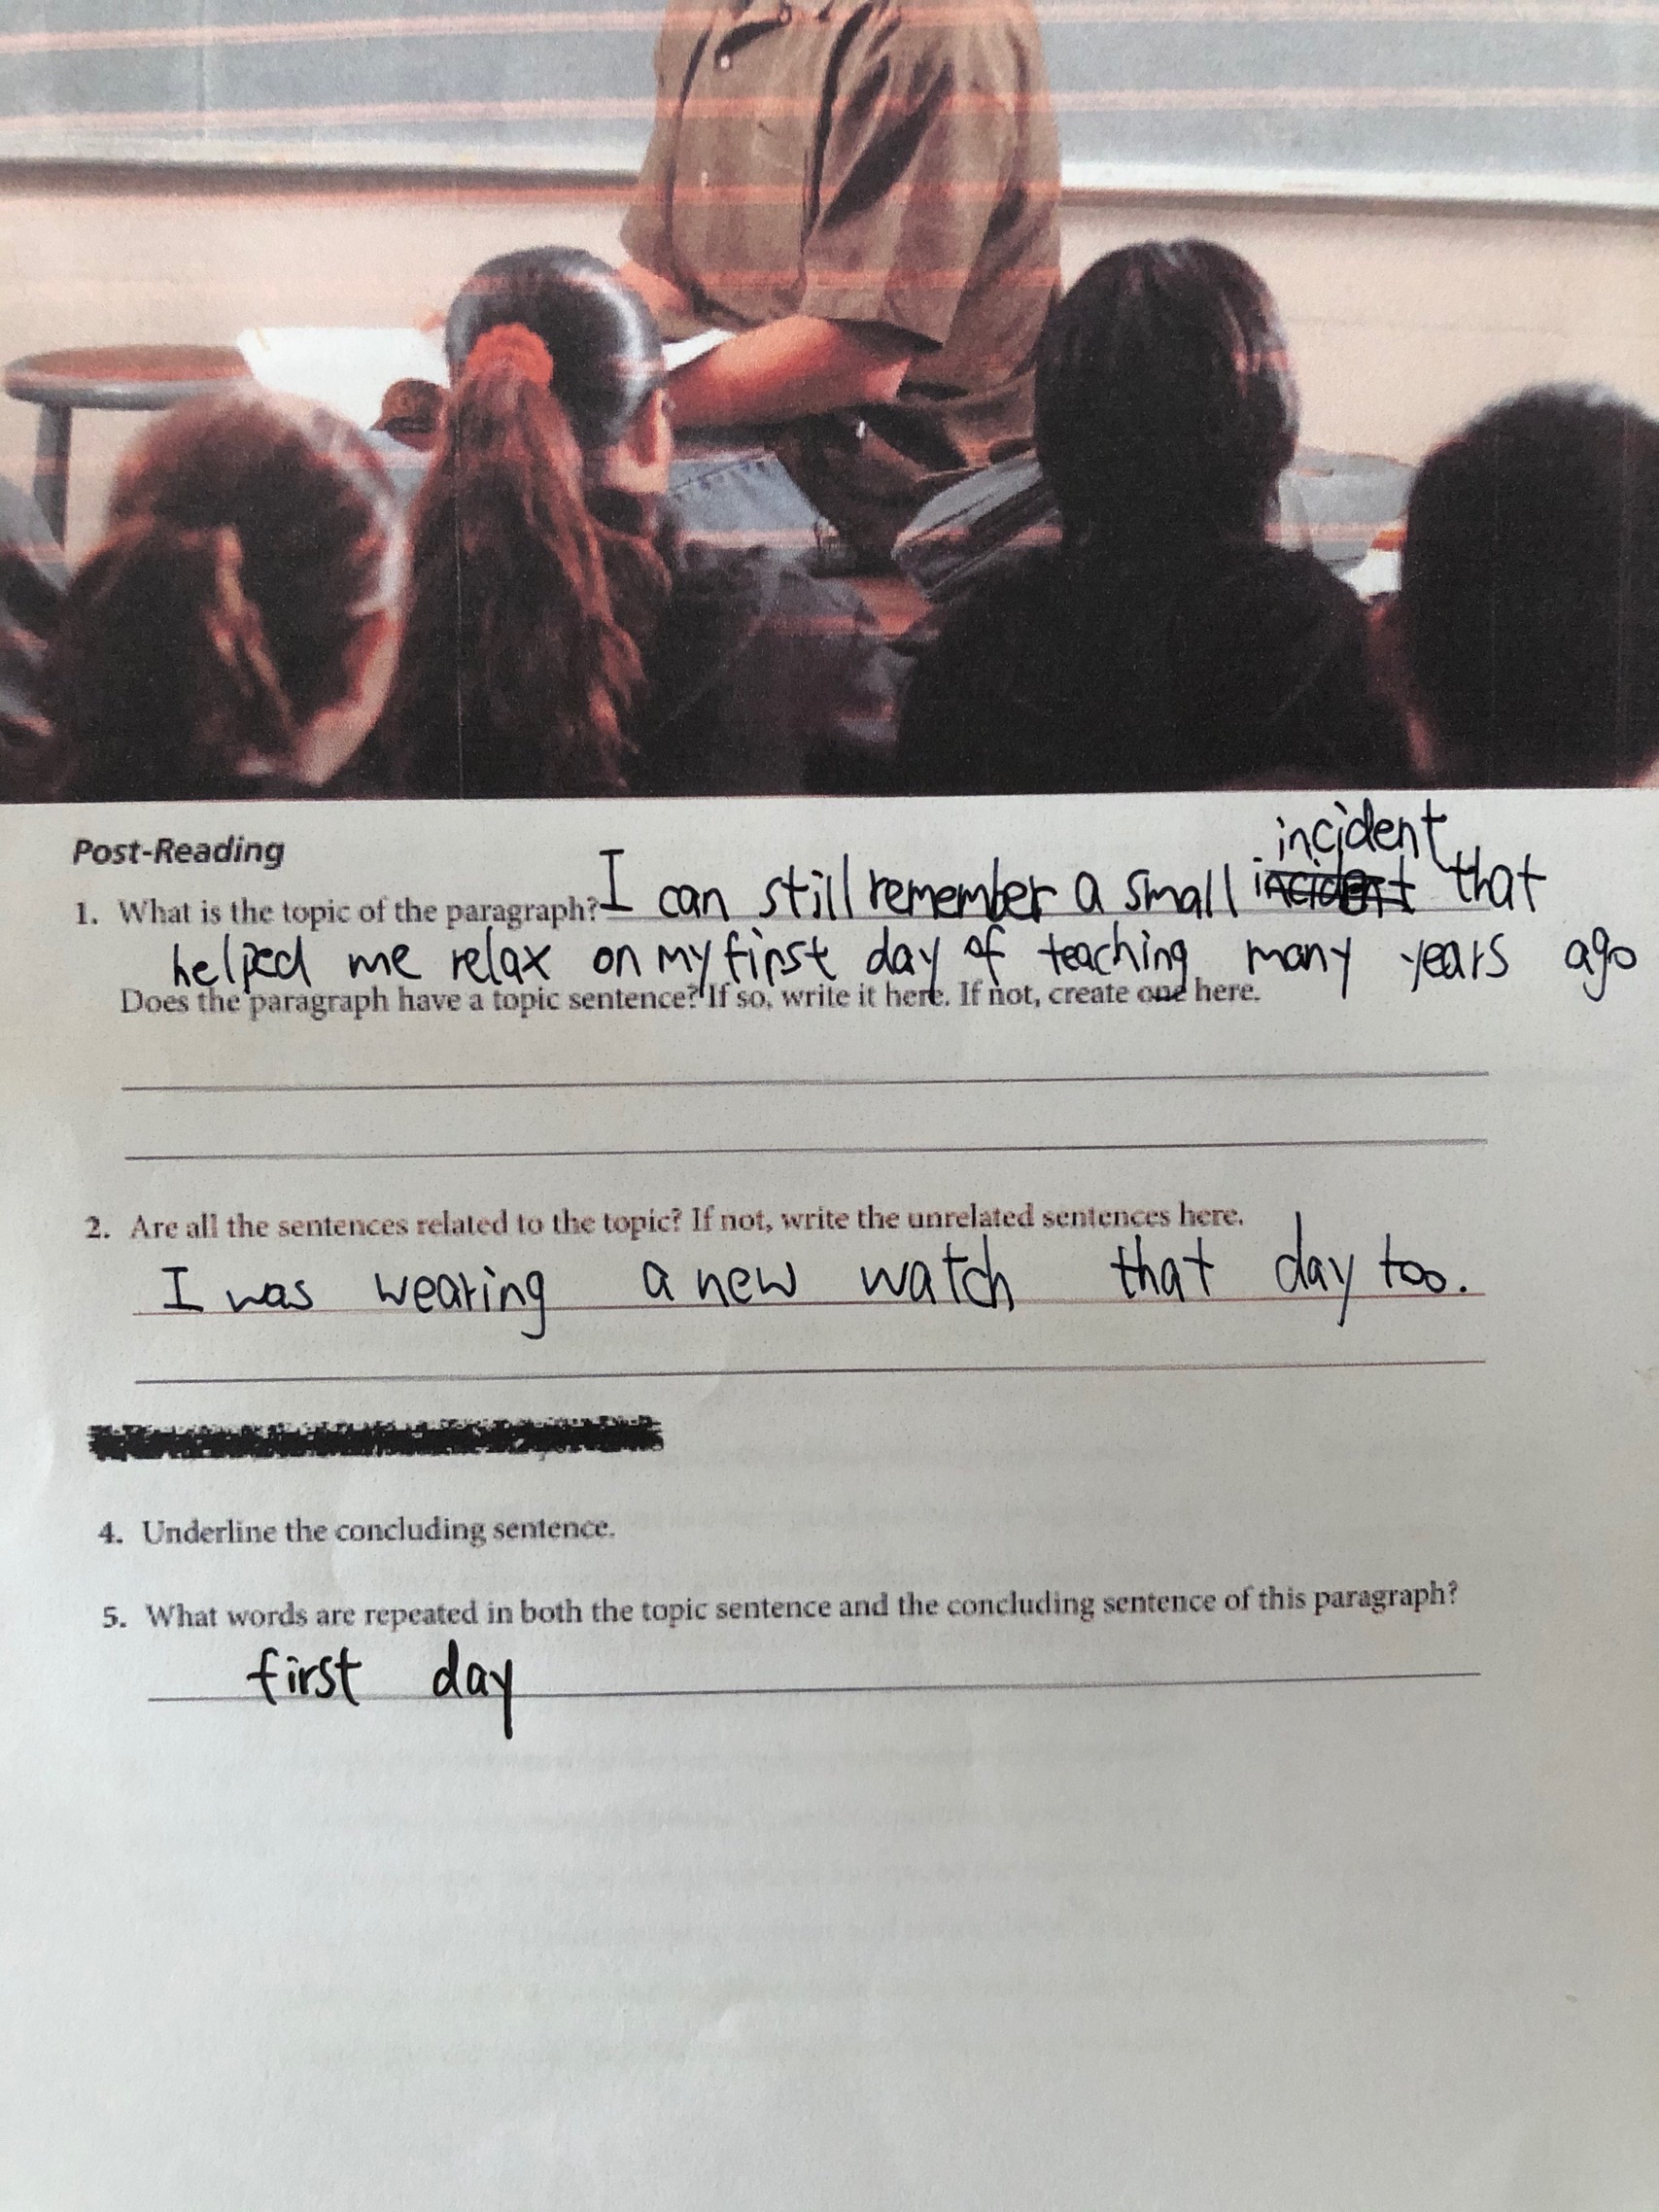 Post-Reading
incident
1. What is the topic of the paragraph? I can still remember a small incident that
helped me relax on my first day of teaching many years ago
Does the paragraph have a topic sentence? If so, write it here. If not, create one here.
2. Are all the sentences related to the topic? If not, write the unrelated sentences here.
I was wearing a new watch that day too.
4. Underline the concluding sentence.
5. What words are repeated in both the topic sentence and the concluding sentence of this paragraph?
first day